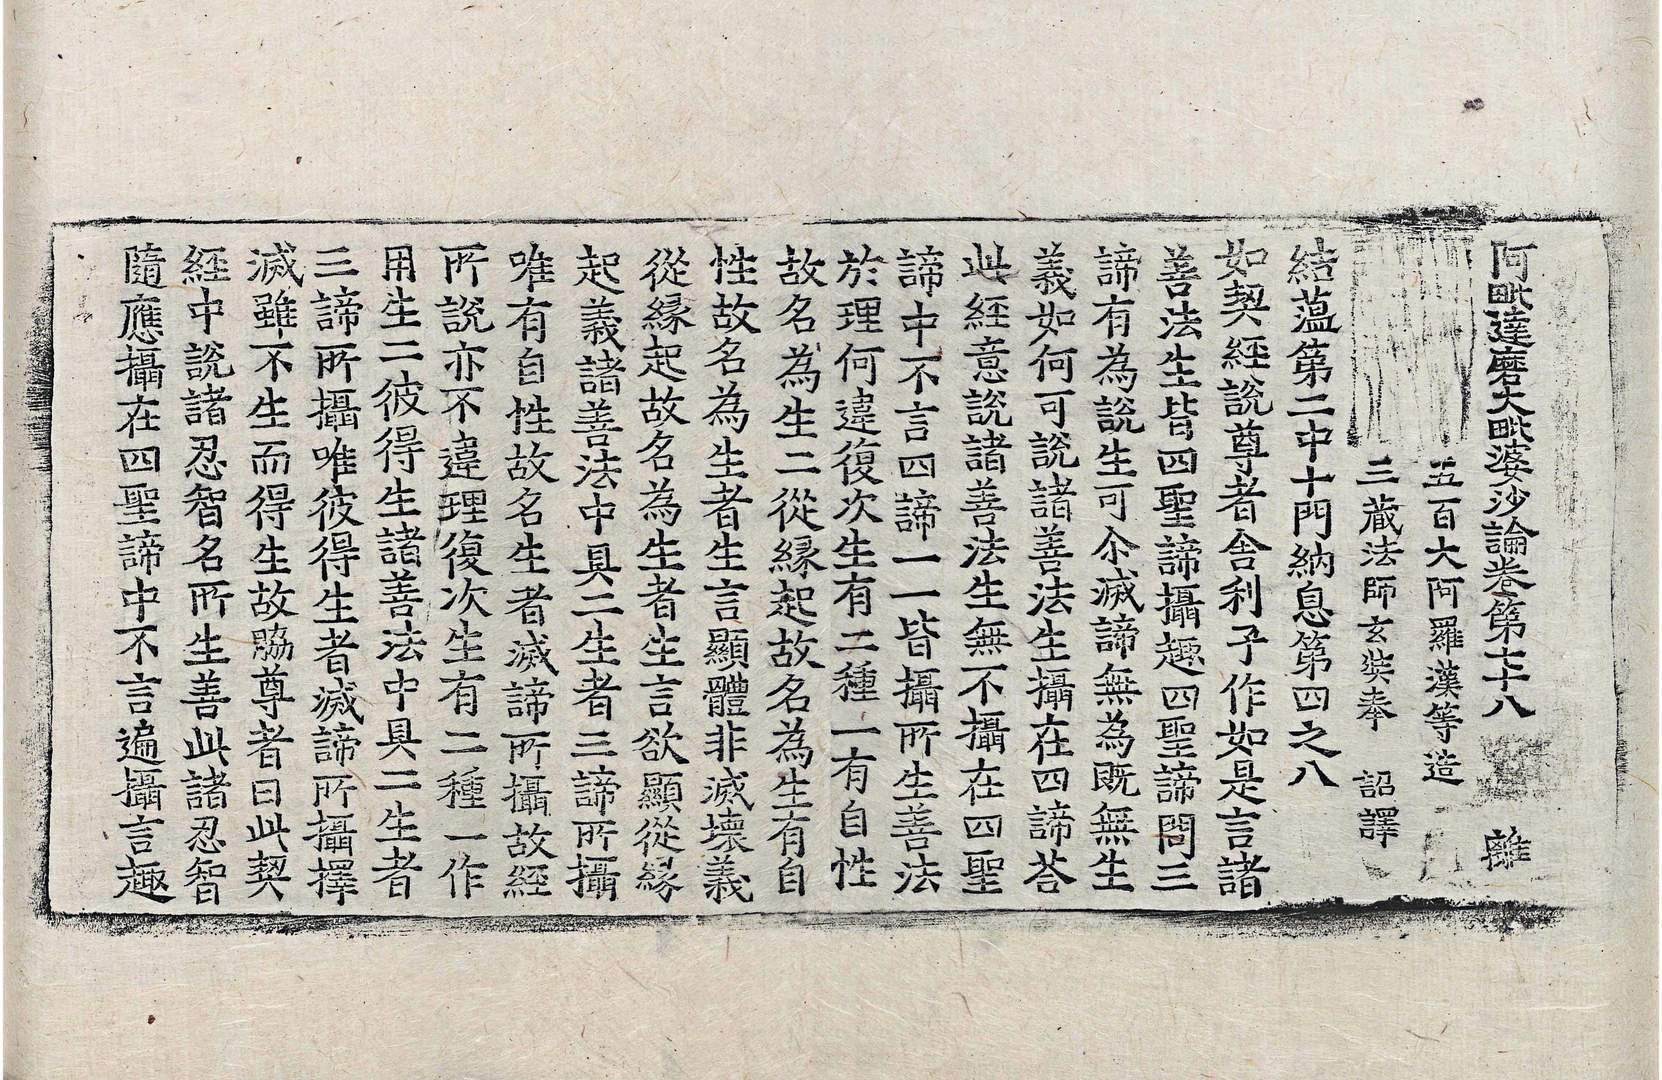 阿毗達磨大毗婆沙論卷第七十八 離
五百大阿羅漢等造
三藏法師玄奘奉 詔譯
結蕰第二中十門納息第四之八
如契經說尊者舍利子作如是言諸
善法生皆四聖諦攝趣四聖諦問三
諦有為說生可尒滅諦無為既無生
義如何可說諸善法生攝在四諦荅
此經意說諸善法生無不攝在四聖
諦中不言四諦一一皆攝所生善法
於理何違復次生有二種一有自性
故名為生二從緣起故名為生有自
性故名為生者生言顯體非滅壞義
從緣起故名為生者生言欲顯從緣
起義諸善法中具二生者三諦所攝
唯有自性故名生者滅諦所攝故經
所說亦不違理復次生有二種一作
用生二彼得生諸善法中具二生者
三諦所攝唯彼得生者滅諦所攝擇
滅雖不生而得生故脇尊者曰此契
經中說諸忍智名所生善此諸忍智
隨應攝在四聖諦中不言遍攝言趣